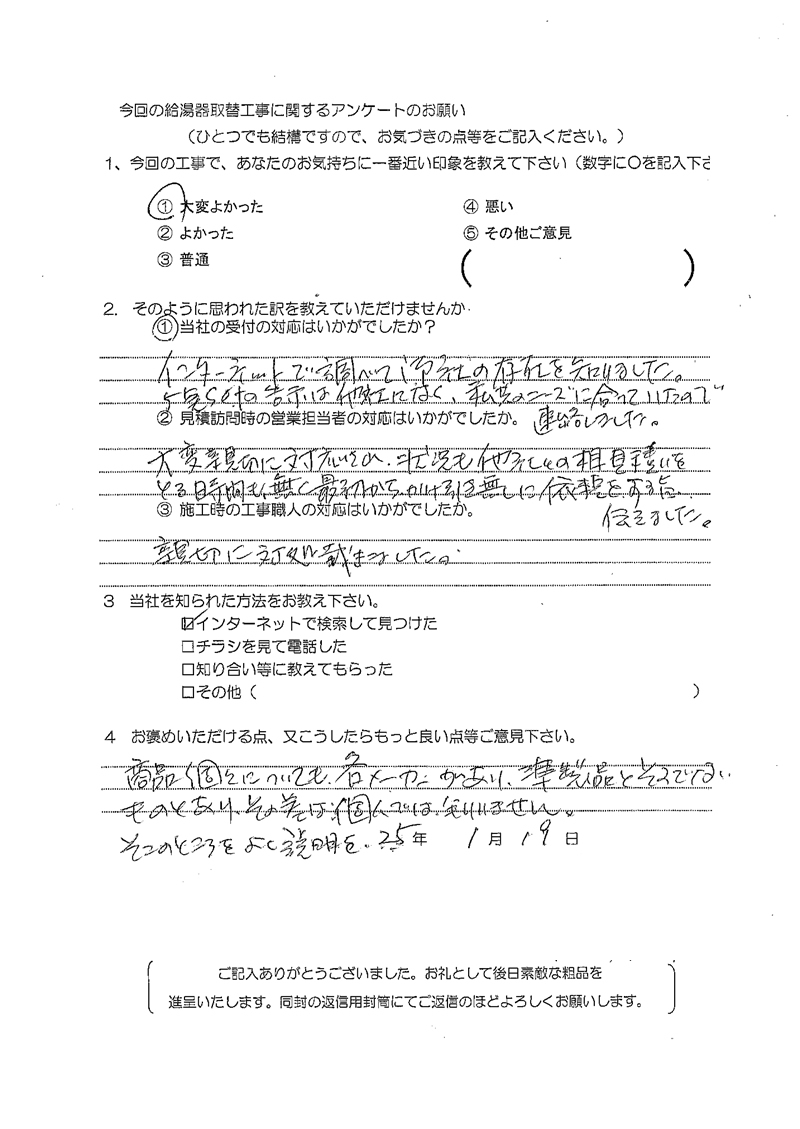 今回の給湯器取替工事に関するアンケートのお願い
（ひとつでも結構ですので、お気づきの点等をご記入ください。）
1、今回の工事で、あなたのお気持ちに一番近い印象を教えて下さい（数字に〇を記入下さ
① 大変よかった ④ 悪い
② よかった ⑤ その他ご意見
③ 普通 ( )
2. そのように思われた訳を教えていただけませんか
①当社の受付の対応はいかがでしたか？
インターネットで調べて御社の存在を知りました。
告示は他社になく、私共のニーズに合っていたので
② 見積訪問時の営業担当者の対応はいかがでしたか。 連絡しました。
大変親切に対応いただ、状況も他社との相見積いを
とる時間も無く最初からかけ引き無しに依頼をする点
③ 施工時の工事職人の対応はいかがでしたか。 伝えました。
親切に対処戴きました。
3 当社を知られた方法をお教え下さい。
☑インターネットで検索して見つけた
□チラシを見て電話した
□知り合い等に教えてもらった
□その他（ ）
4 お褒めいただける点、又こうしたらもっと良い点等ご意見下さい。
商品個々についても、各メーカーがあり、準製品とそうでない
ものとあり、その差は個人では知りません。
そこのところをよく説明を。25年 1月19日
ご記入ありがとうございました。お礼として後日素敵な粗品を
進呈いたします。同封の返信用封筒にてご返信のほどよろしくお願いします。